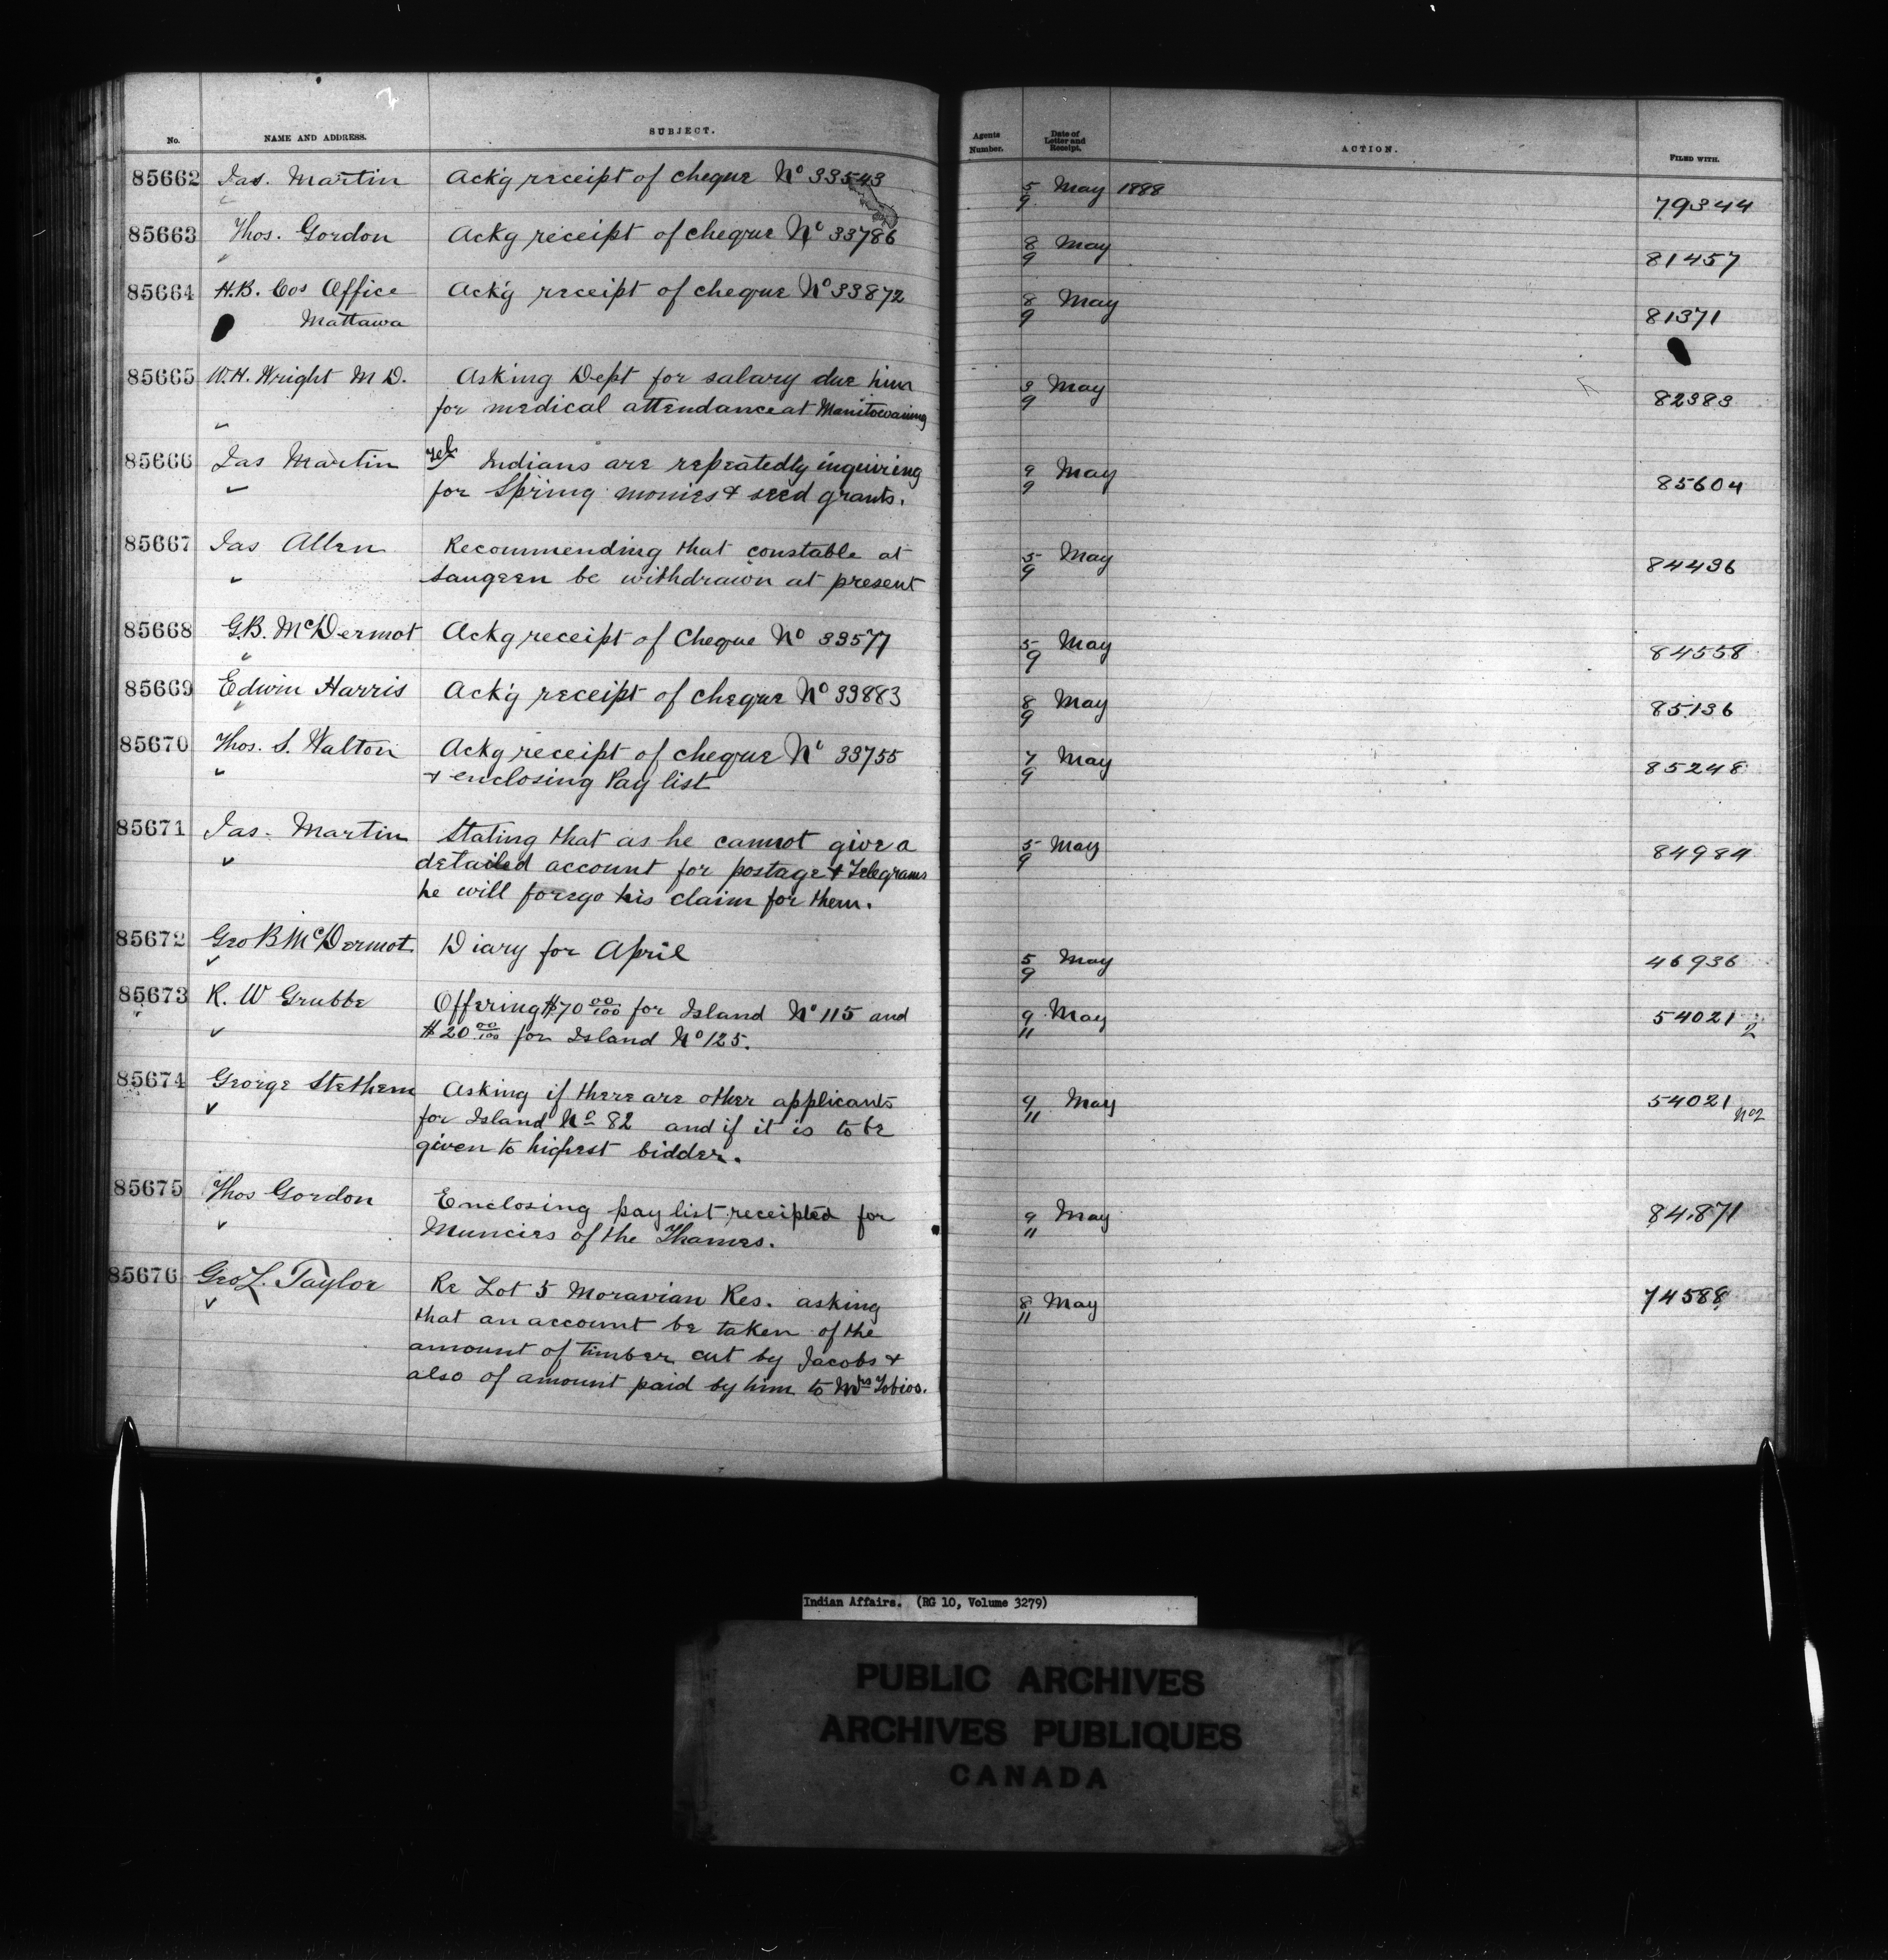 No. NAME AND ADDRESS. SUBJECT. Agents Number. Date of Letter and Receipt. ACTION. FILED WITH.
85662 Jas. Martin Ack'g receipt of cheque No 33543 5/9 May 1888 79344
85663 Thos. Gordon Ackg receipt of cheque No 33786 8/9 May 81457
85664 H.B. Cos Office Ack'g receipt of cheque No 33872 8/9 May 81371
Mattawa
85665 W.H. Wright M D. Asking Dept for salary due him 3/9 May 82383
for medical attendance at Manitowaning
85666 Jas Martin Tel Indians are repeatedly inquiring 9/9 May 85604
for Spring monies & seed grants.
85667 Jas Allen Recommending that constable at 5/9 May 84436
Saugeen be withdrawn at present
85668 G.B. McDermot Ackg receipt of Cheque No 33577 5/9 May 84558
85669 Edwin Harris Ack'g receipt of cheque No 33883 8/9 May 85136
85670 Thos. S. Walton Ackg receipt of cheque No 33755 7/9 May 85248
& enclosing Pay list
85671 Jas. Martin Stating that as he cannot give a 5/9 May 84984
detailed account for postage & Telegrams
he will forego his claim for them.
85672 Geo B McDermot Diary for April 5/9 May 46936
85673 R. W Grubbe Offering $70 00/100 for Island No 115 and 9/11 May 54021 2
$20 00/100 for Island No 125.
85674 George Stethem Asking if there are other applicants 9/11 May 54021 No2
for Island No 82 and if it is to be
given to highest bidder.
85675 Thos Gordon Enclosing pay list receipted for 9/11 May 84.871
Muncies of the Thames.
85676 Geo L. Taylor Re Lot 5 Moravian Res. asking 8/11 May 74588
that an account be taken of the
amount of timber cut by Jacobs &
also of amount paid by him to Mrs Tobias.
Indian Affairs. (RG 10, Volume 3279)
PUBLIC ARCHIVES
ARCHIVES PUBLIQUES
CANADA